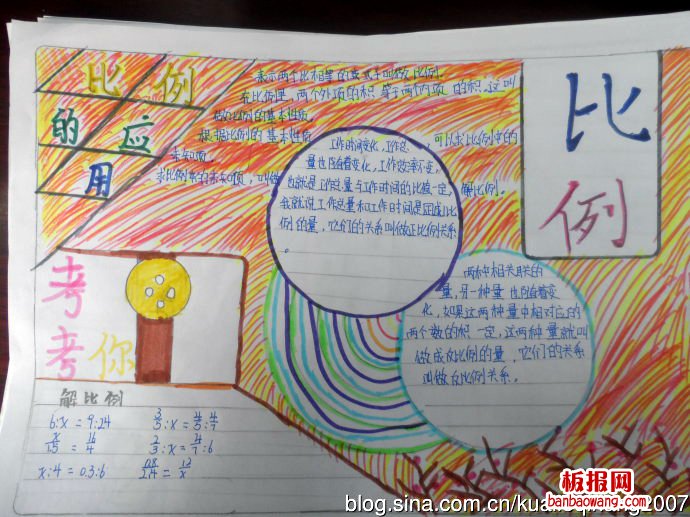 比例的应用
表示两个比相等的式子叫做比例。
在比例里，两个外项的积等于两个内项的积。这叫
做比例的基本性质。
根据比例的基本性质，可以求比例中的
未知项。
求比例中的未知项，叫做解比例。
比例
工作时间变化，工作总
量也随着变化，工作效率不变，
也就是工作总量与工作时间的比值一定，
我就说工作总量和工作时间是正比
例的量，它们的关系叫做正比例关系
。
两种相关联的
量，另一种量也随着变
化，如果这两种量中相对应的
两个数的积一定，这两种量就叫
做成反比例的量，它们的关系
叫做反比例关系。
考考你
解比例
6:x=9:24
x:4=0.3:6
板报网
banbaowang.com